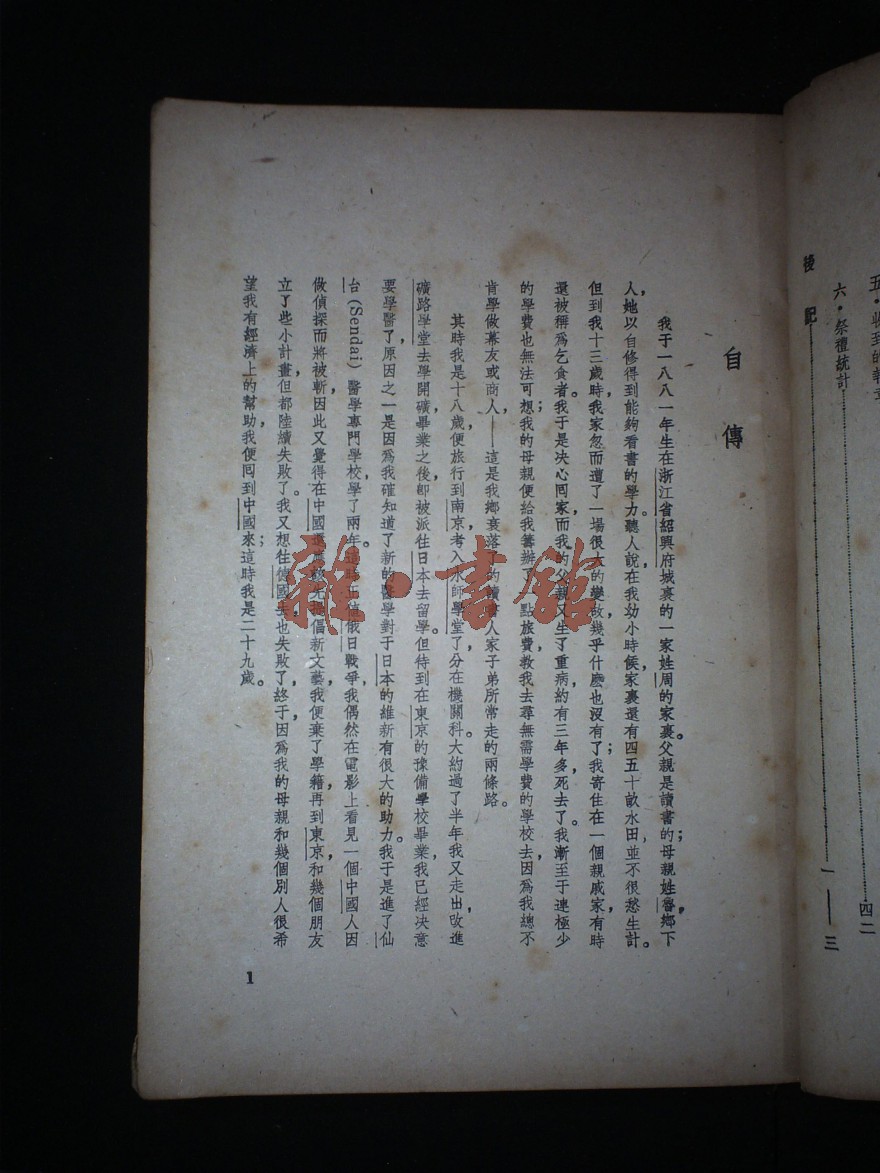 六・祭禮統計……四二
後記……一——三
自傳
我于一八八一年生在浙江省紹興府城裏的一家姓周的家裏。父親是讀書的；母親姓魯，鄉下
人，她以自修得到能夠看書的學力。聽人說，在我幼小時候，家裏還有四五十畝水田，並不很愁生計。
但到我十三歲時，我家忽而遭了一場很大的變故，幾乎什麽也沒有了；我寄住在一個親戚家，有時
還被稱爲乞食者。我于是决心囘家，而我的父親又生了重病，約有三年多，死去了。我漸至于連極少
的學費也無法可想；我的母親便給我籌辦了一點旅費，教我去尋無需學費的學校去，因爲我總不
肯學做幕友或商人，——這是我鄉衰落了的讀書人家子弟所常走的兩條路。
其時我是十八歲，便旅行到南京，考入水師學堂了，分在機關科。大約過了半年，我又走出，改進
礦路學堂去學開礦，畢業之後，卽被派往日本去留學。但待到在東京的豫備學校畢業，我已經决意
要學醫了，原因之一是因爲我確知道了新的醫學對于日本的維新有很大的助力。我于是進了仙
台(Sendai)醫學專門學校，學了兩年。這時正値俄日戰爭，我偶然在電影上看見一個中國人因
做偵探而將被斬，因此又覺得在中國還應該先提倡新文藝。我便棄了學籍，再到東京，和幾個朋友
立了些小計畫，但都陸續失敗了。我又想往德國去，也失敗了。終于，因爲我的母親和幾個別人很希
望我有經濟上的幫助，我便囘到中國來；這時我是二十九歲。
1
雜・書館